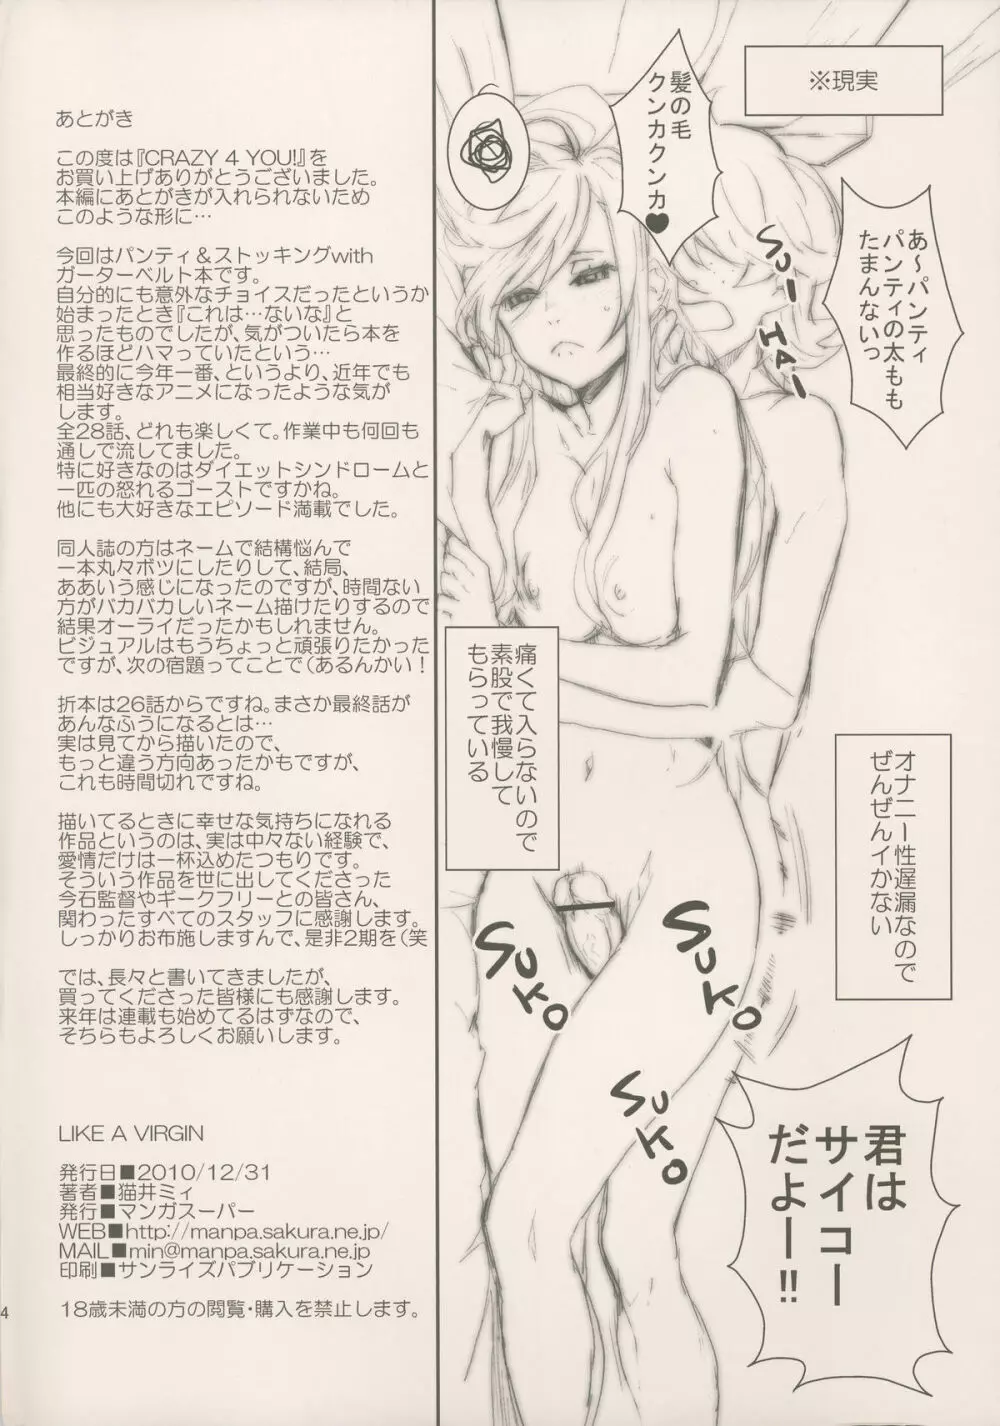 ※現実
髪の毛
クンカクンカ♥
あ〜パンティ
パンティの太もも
たまんないっ
SU-
HA-
痛くて入らないので
素股で我慢して
もらっている
オナニー性遅漏なので
ぜんぜんイかない
SUKO
SUKO
SUKO
君は
サイコー
だよー!!
あとがき
この度は『CRAZY 4 YOU!』を
お買い上げありがとうございました。
本編にあとがきが入れられないため
このような形に…
今回はパンティ＆ストッキングwith
ガーターベルト本です。
自分的にも意外なチョイスだったというか
始まったとき『これは…ないな』と
思ったものでしたが、気がついたら本を
作るほどハマっていたという…
最終的に今年一番、というより、近年でも
相当好きなアニメになったような気が
します。
全28話、どれも楽しくて。作業中も何回も
通しで流してました。
特に好きなのはダイエットシンドロームと
一匹の怒れるゴーストですかね。
他にも大好きなエピソード満載でした。
同人誌の方はネームで結構悩んで
一本丸々ボツにしたりして、結局、
ああいう感じになったのですが、時間ない
方がバカバカしいネーム描けたりするので
結果オーライだったかもしれません。
ビジュアルはもうちょっと頑張りたかった
ですが、次の宿題ってことで（あるんかい！
折本は26話からですね。まさか最終話が
あんなふうになるとは…
実は見てから描いたので、
もっと違う方向あったかもですが、
これも時間切れですね。
描いてるときに幸せな気持ちになれる
作品というのは、実は中々ない経験で、
愛情だけは一杯込めたつもりです。
そういう作品を世に出してくださった
今石監督やギークフリーとの皆さん、
関わったすべてのスタッフに感謝します。
しっかりお布施しますんで、是非2期を（笑
では、長々と書いてきましたが、
買ってくださった皆様にも感謝します。
来年は連載も始めてるはずなので、
そちらもよろしくお願いします。
LIKE A VIRGIN
発行日■2010/12/31
著者■猫井ミィ
発行■マンガスーパー
WEB■http://manpa.sakura.ne.jp/
MAIL■min@manpa.sakura.ne.jp
印刷■サンライズパブリケーション
18歳未満の方の閲覧・購入を禁止します。
4